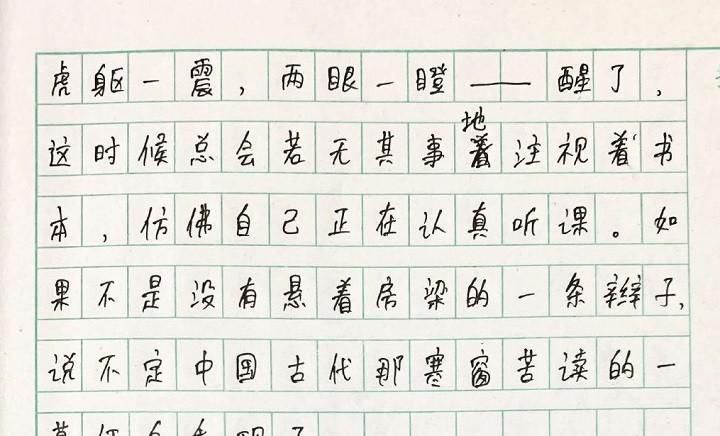 虎躯一震，两眼一瞪——醒了，
这时候总会若无其事地注视着书
本，仿佛自己正在认真听课。如
果不是没有悬着房梁的一条辫子，
说不定中国古代那寒窗苦读的一